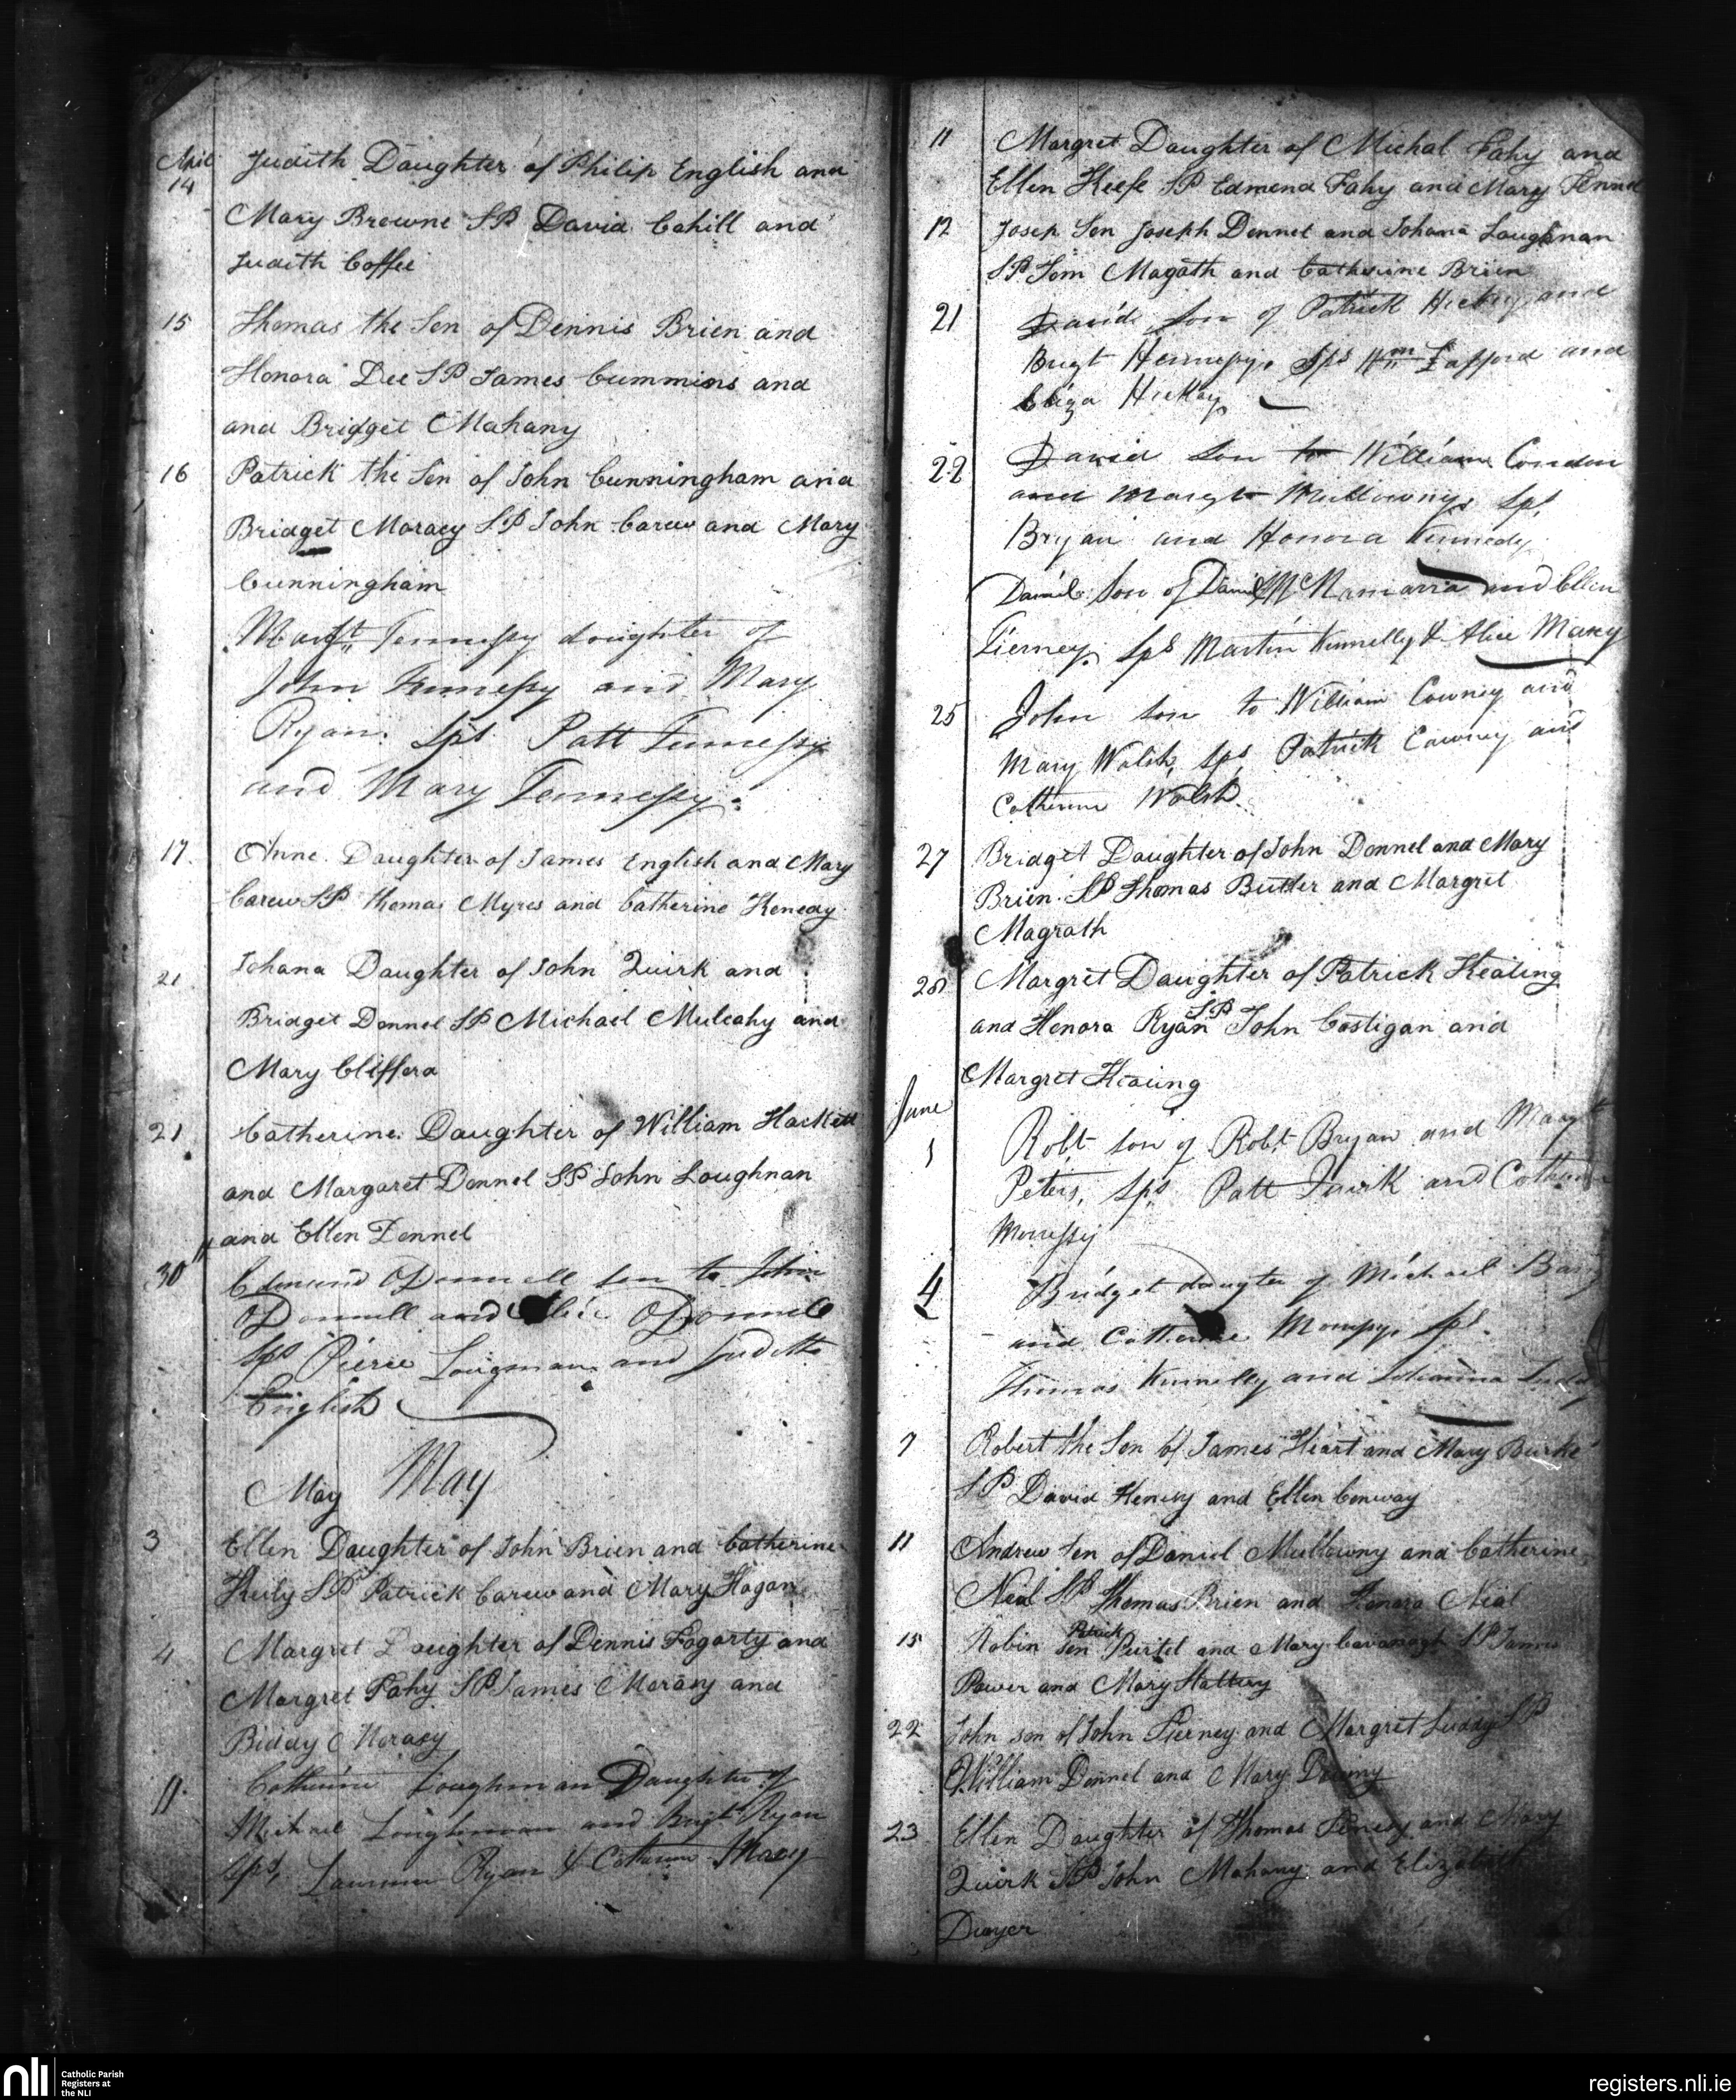 April
14 Judith Daughter of Philip English and
Mary Browne SP David Cahill and
Judith Coffee
15 Thomas the Son of Dennis Brien and
Honora Dee SP James Cummins and
and Bridget Mahany
16 Patrick the Son of John Cunningham and
Bridget Moracy SP John Carew and Mary
Cunningham
Margt Fennessy doughter of
John Fennessy and Mary
Ryan. Sps Patt Fennessy
and Mary Fennessy.
17. Anne Daughter of James English and Mary
Carew SP thomas Myres and Catherine Kenedy
21 Johana Daughter of John Quirk and
Bridget Donnel SP Michael Mulcahy and
Mary Cliffora
21 Catherine Daughter of William Hackett
and Margaret Donnel SP John Loughnan
and Ellen Donnel
30 Edmund ODonnell son to John
ODonnell and ODonnell
Sps Pierce Lougman and Judith
English
May May
3 Ellen Daughter of John Brien and Catherine
Keily SP Patrick Carew and Mary Hogan
4 Margret Daughter of Dennis Fogarty and
Margret Fahy SP James Moracy and
Biddy Moracy
11. Catherine Loughman Daughter of
Michael Loughman and Brigt Ryan
Sps, Ryan & Catherine
11 Margret Daughter of Michal Fahy and
Ellen Keefe SP Edmend Fahy and Mary Fennel
12 Josep Son Joseph Donnel and Johana Loughnan
SP Tom Magath and Catherine Brien
21 David son of Patrick Hickey and
Brigt Hennessy. Sps Wm and
Eliza Hickey
22 David son to William Condon
and Margt Mullowny Sps,
Bryan and Honora Kennedy
Daniel son of Daniel McNamarra and Ellen
Tierney. Sps Martin Kennelly & Alice Mary
25 John son to William Cowney and
Mary Walsh, Sps, Patrick Cowney and
Catherine Walsh.
27 Bridget Daughter of John Donnel and Mary
Brien. SP Thomas Butler and Margret
Magrath
28 Margret Daughter of Patrick Keating
and Honora Ryan SP John Costigan and
Margret Keating
June
1 Robt son of Robt Bryan and Margt
Peters, Sps Patt Quirk and
4 Bridget daugter of Michael
and Catherine Sps.
Thomas Kennelly and Johanna
7 Robert the Son of James Heart and Mary Burke
SP David Henesy and Ellen Conway
11 Andrew Son of Daniel Mullowny and Catherine
Neal SP Thomas Brien and Honora Neal
15 Robin Son Patrick Purtel and Mary Cavanagh SP James
Power and Mary Slattery
22 John son of John Tierney and Margret Luddy SP
William Donnel and Mary Downy
23 Ellen Daughter of Thomas Fenesy and Mary
Quirk SP John Mahany and Elizabeth
Dwyer
nli Catholic Parish
Registers at
the NLI
registers.nli.ie